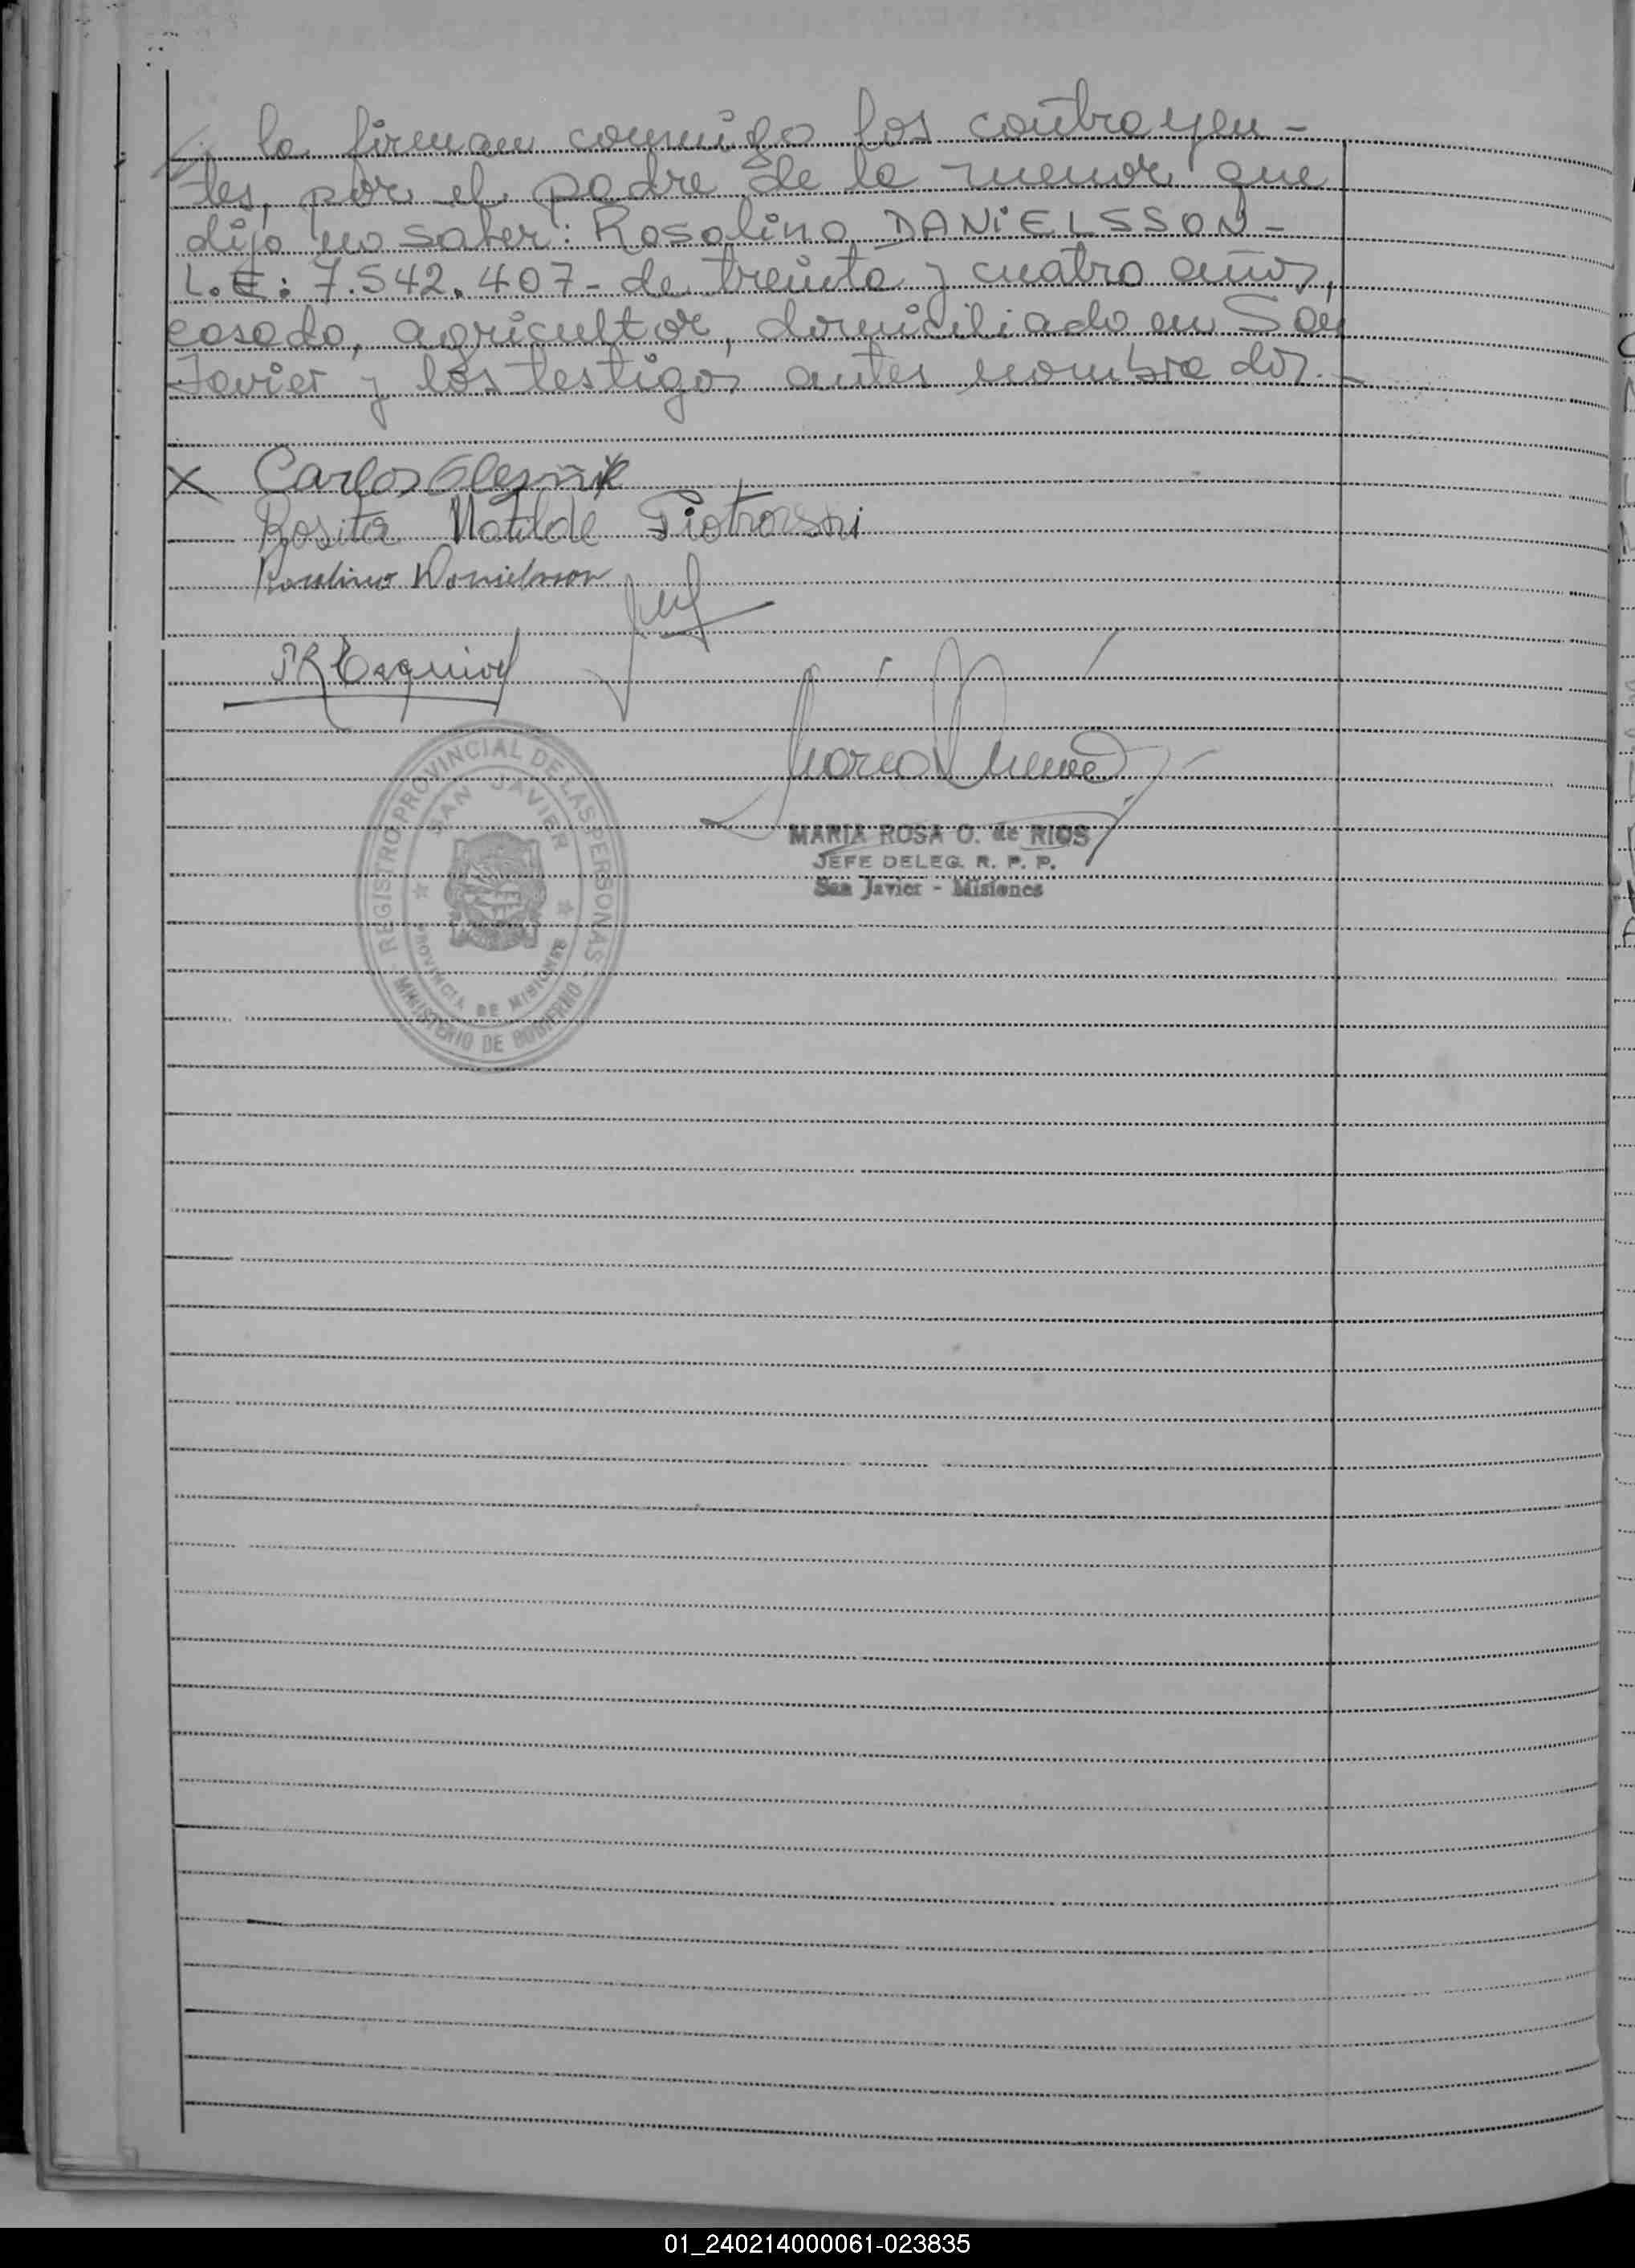 // la firman conmigo los contrayen-
tes, por el padre de la menor que
dijo no saber: Rosalino DANiELSSON-
L.E: 7.542.407- de treinta y cuatro años,
casado, agricultor, domiciliado en San
Javier y los testigos antes nombrados.-
X Carlos Olesnik
Rosita Matilde Piotroski
Rosalino Danielsson
JR Esquivel
REGISTRO PROVINCIAL DE LAS PERSONAS
SAN JAVIER
PROVINCIA DE MISIONES
MINISTERIO DE GOBIERNO
MARIA ROSA O. de RIOS
JEFE DELEG. R. P. P.
San Javier - Misiones
01_240214000061-023835